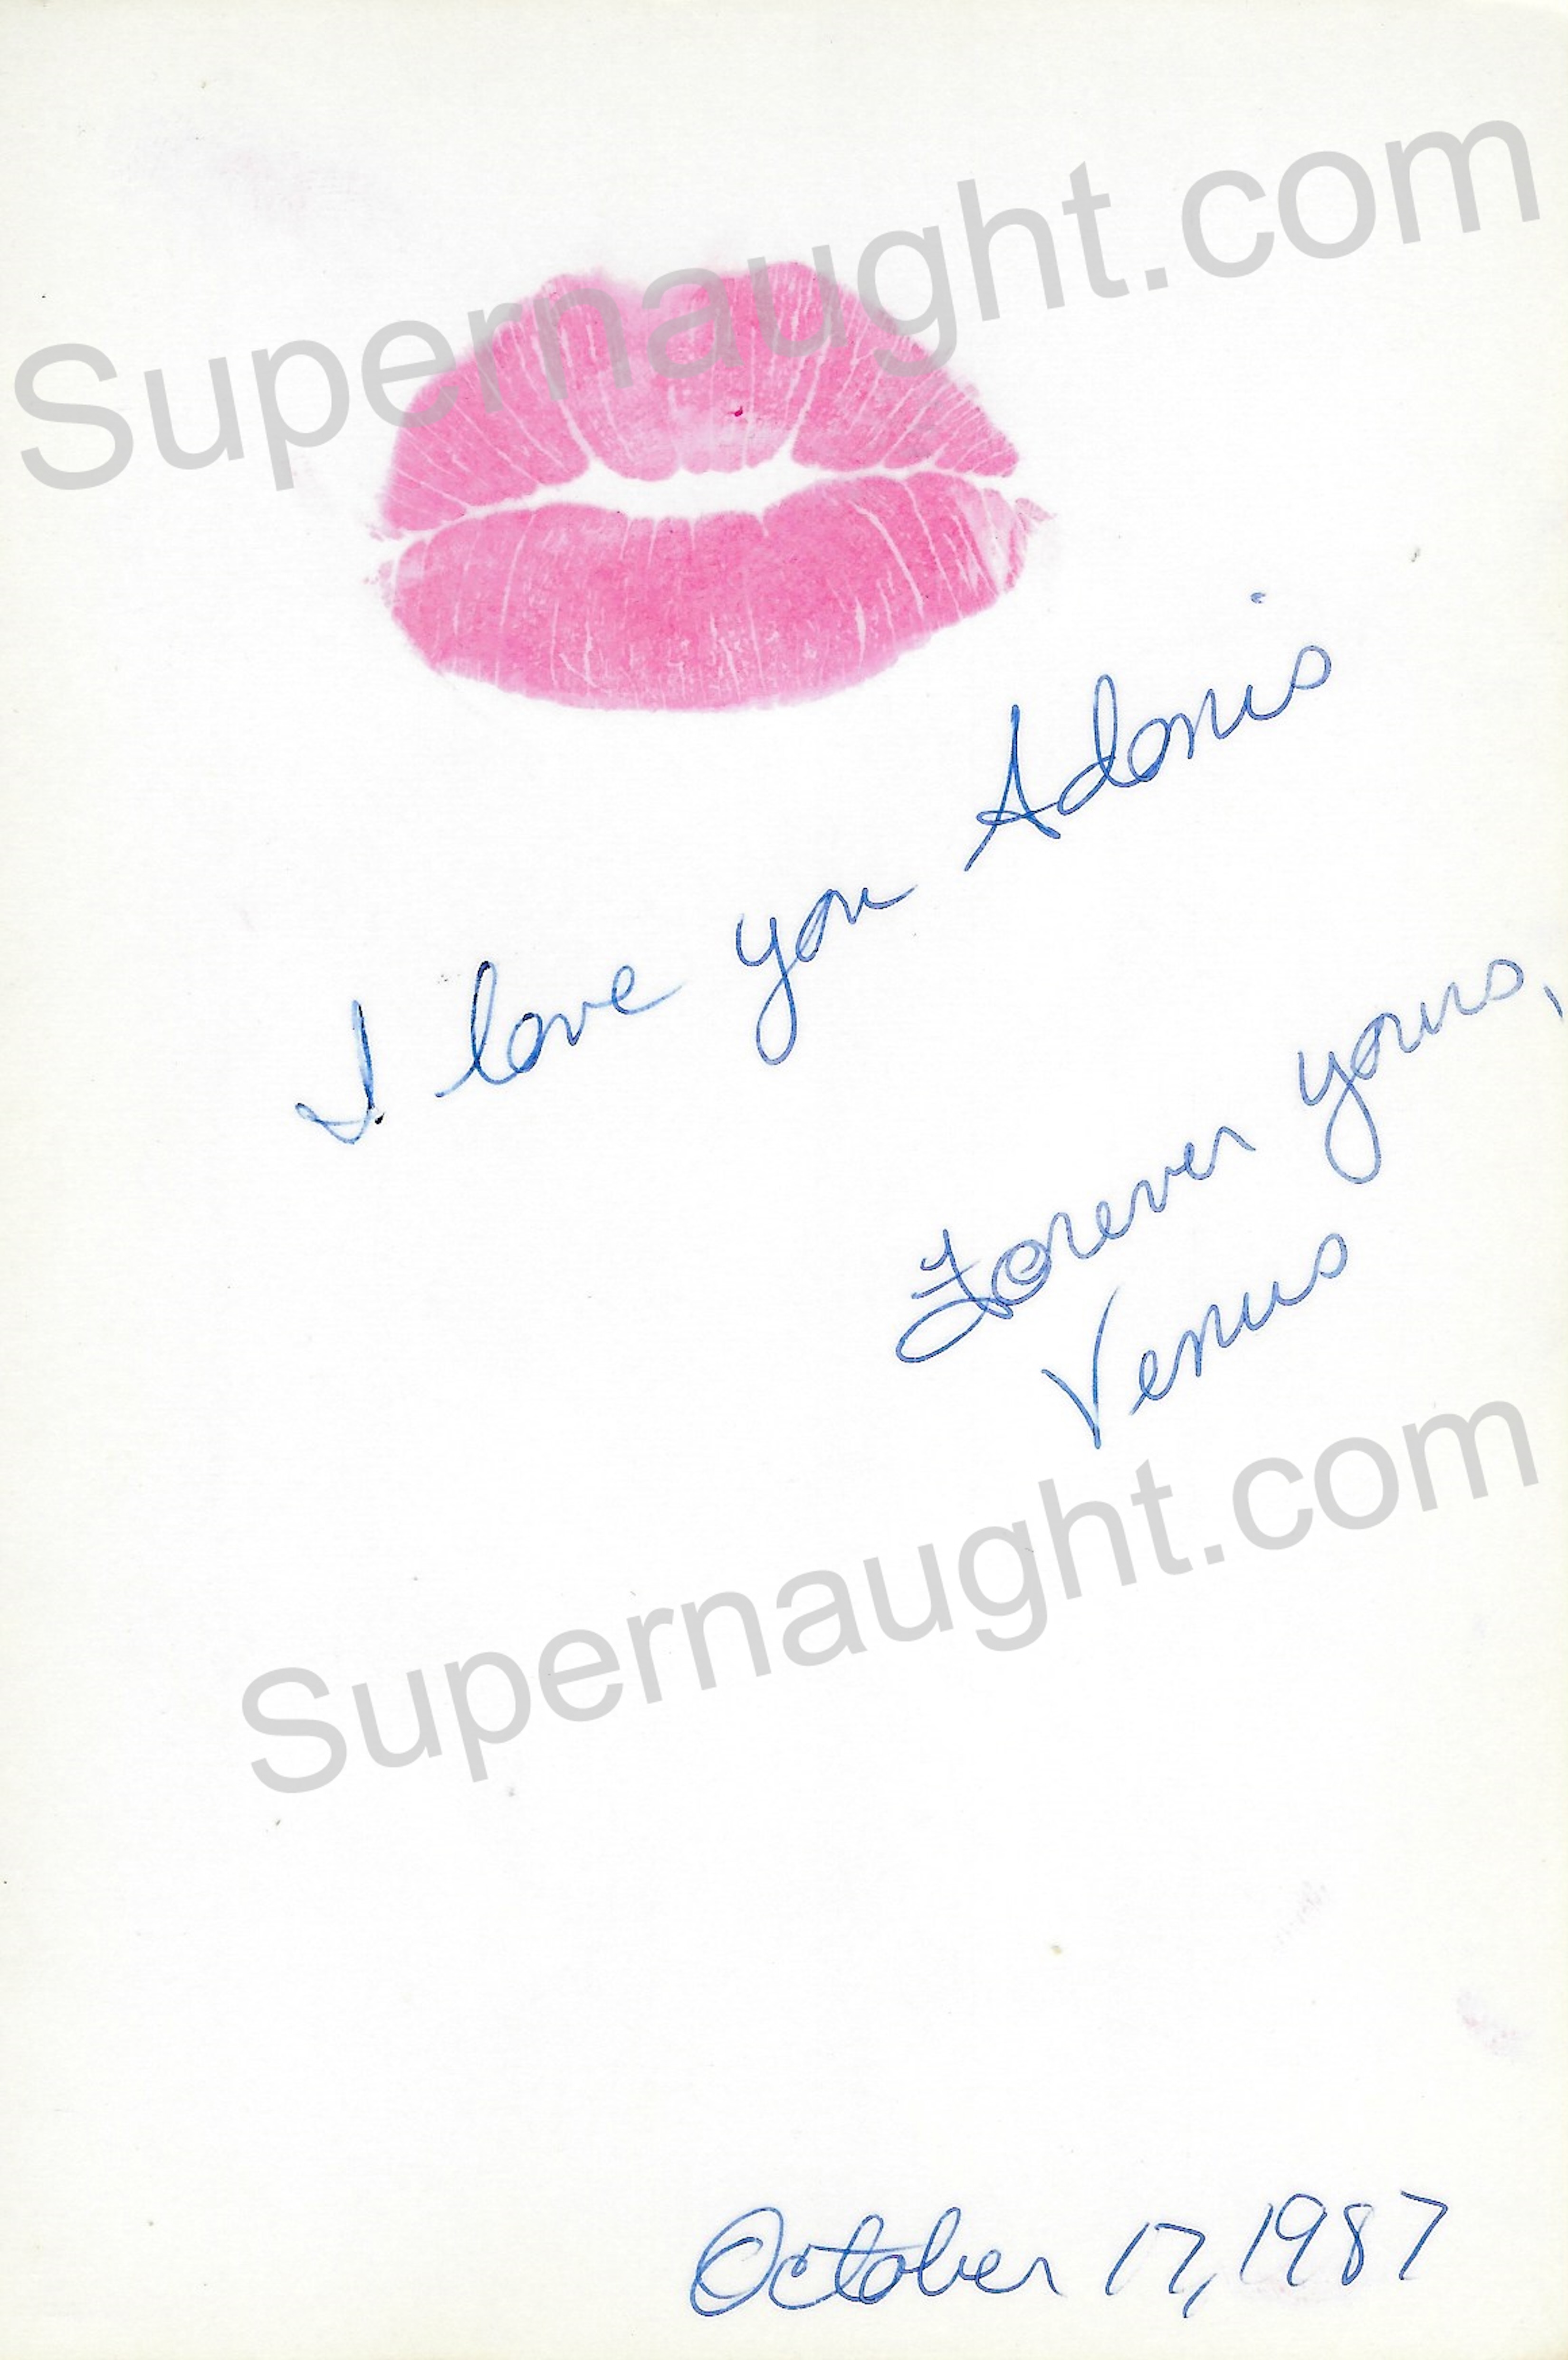 Supernaught.com
I love you Adonis
Forever yours,
Venus
Supernaught.com
October 17, 1987